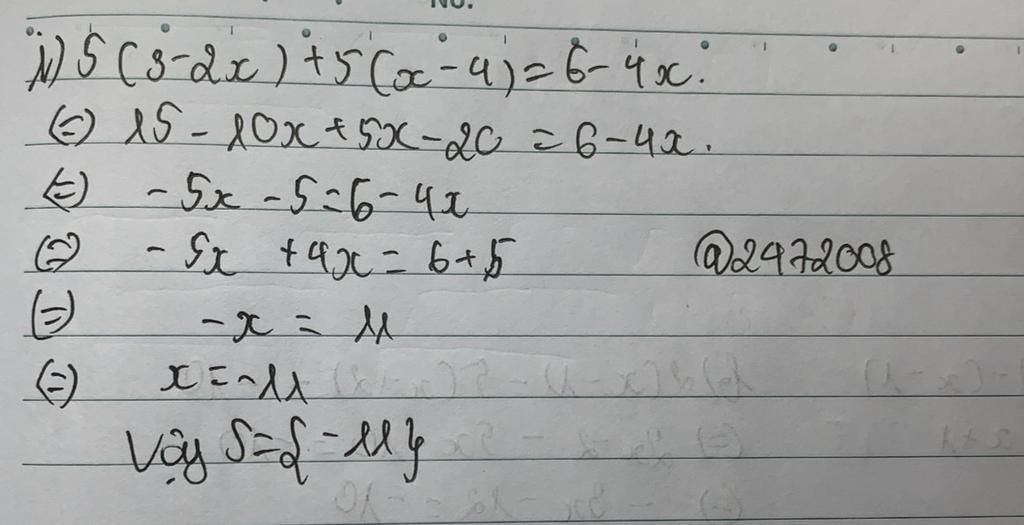 No.
i) 5(3-2x)+5(x-4)=6-4x.
(=) 15-10x+5x-20=6-4x.
(=) -5x-5=6-4x
(=) -5x+4x=6+5
@2472008
(=) -x=11
(=) x=-11
Vậy S={-11}